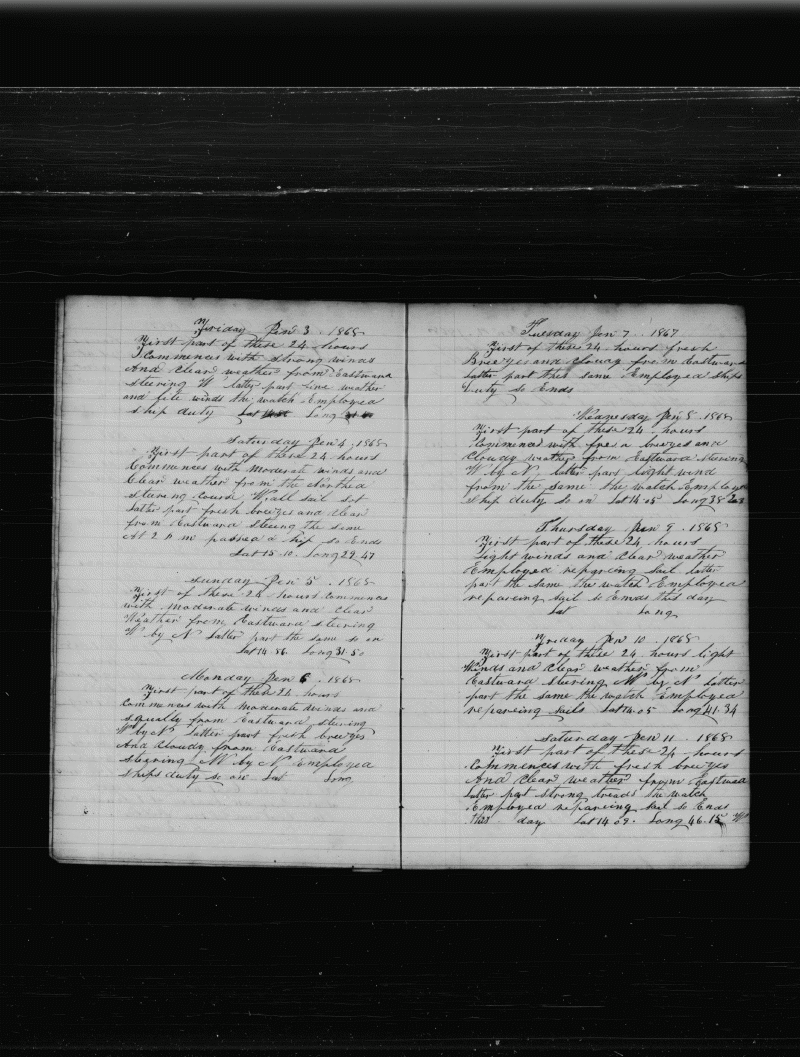 Friday Jen 3. 1868
First part of these 24 hours
Commences with strong winds
And Clear weather from Eastward
steering W latter part fine weather
and fite winds the watch Employed
ship duty Lat Long
Saturday Jen 4. 1868
First part of these 24 hours
Commences with moderate winds and
Clear weather from the Northed
steering Course W all sail set
latter part fresh breezes and Clear
from Eastward steering the same
At 2 P m passed a ship so Ends
Lat 15.10. Long 29.47
Sunday Jen 5. 1868
First of these 24 hours Commences
with moderate winds and Clear
Weather from Eastward steering
W by N latter part the same so on
Lat 14.56. Long 31.50
Monday Jen 6. 1868
First part of these 24 hours
Commences with moderate winds and
squally from Eastward steering
W by N latter part fresh breezes
And Cloudy from Eastward
stearing W by N Employed
ships duty so on Lat Long
Tuesday Jen 7. 1867
First of these 24 hours fresh
Breezes and Cloudy from Eastward
latter part the same Employed ships
Duty so Ends
Wednesday Jen 8. 1868
First part of these 24 hours
Commences with fresh breezes and
Cloudy weather from Eastward steering
W by N. latter part light wind
from the same the watch Employed
ship duty so on Lat 14.05 Long 38
Thursday Jen 9. 1868
First part of these 24 hours
Light winds and Clear weather
Employed reparcing sail latter
part the same the watch Employed
reparceing sail so Ends this day
Lat Long
Friday Jen 10. 1868
First part of these 24 hours light
Winds and Clear weather from
Eastward stering W by N latter
part the same the watch Employed
reparceing sails Lat 14.05 Long 41.34
Saturday Jen 11. 1868
First part of these 24 hours
Commences with fresh breezes
And Clear weather from Eastward
latter part strong treads the watch
Employed reparceing sail so Ends
this day Lat 14.09. Long 46.15 W